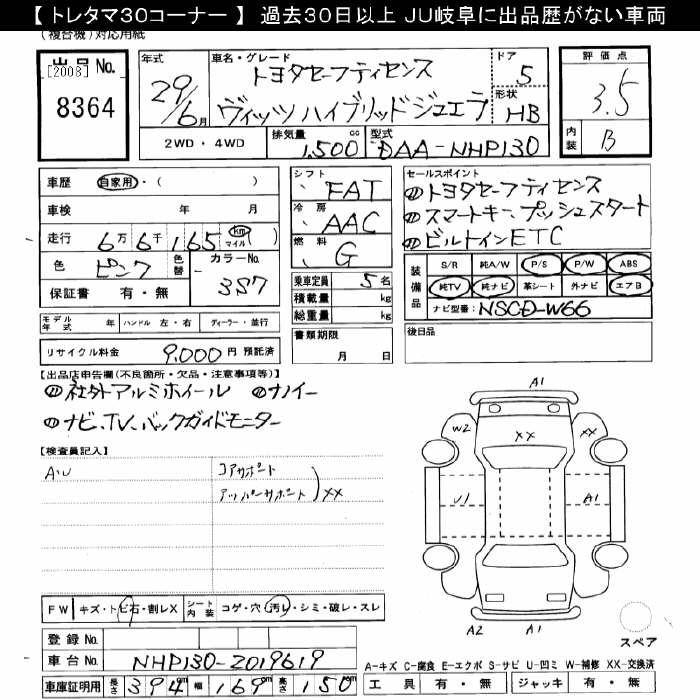 【トレタマ30コーナー】 過去30日以上 JU岐阜に出品歴がない車両
(複合機)対応用紙
出品No.
[2008]
8364
年式
29/6月
車名・グレード
トヨタセーフティセンス
ヴィッツ ハイブリッド ジュエラ
ドア
5
形状
HB
評価点
3.5
内装
B
2WD・4WD
排気量
1,500 cc
型式
DAA-NHP130
車歴 自家用・( )
車検 年 月
走行 6万6千165 km マイル
色 ピンク 色替 カラーNo. 3S7
保証書 有・無
シフト FAT
冷房 AAC
燃料 G
乗車定員 5名
積載量 kg
総重量 kg
セールスポイント
トヨタセーフティセンス
スマートキー、プッシュスタート
ビルトインETC
装備品
S/R 純A/W P/S P/W ABS
純TV 純ナビ 革シート 外ナビ エアB
ナビ型番: NSCD-W66
モデル年式 年 ハンドル 左・右 ディーラー・並行
リサイクル料金 9,000円 預託済
書類期限
月 日
後日品
【出品店申告欄(不良箇所・欠品・注意事項等)】
社外アルミホイール ナノイー
ナビ、TV、バックガイドモニター
【検査員記入】
A・U
コアサポート
アッパーサポート)XX
A1
W2
XX
XX
U1
A1
A2
A1
スペア
FW キズ・トビ石・割レX シート内装 コゲ・穴・汚レ・シミ・破レ・スレ
登録No.
車台No. NHP130-2019619
車庫証明用 長さ 394cm 幅 169cm 高さ 150cm
A-キズ C-腐食 E-エクボ S-サビ U-凹ミ W-補修 XX-交換済
工具 有・無 ジャッキ 有・無